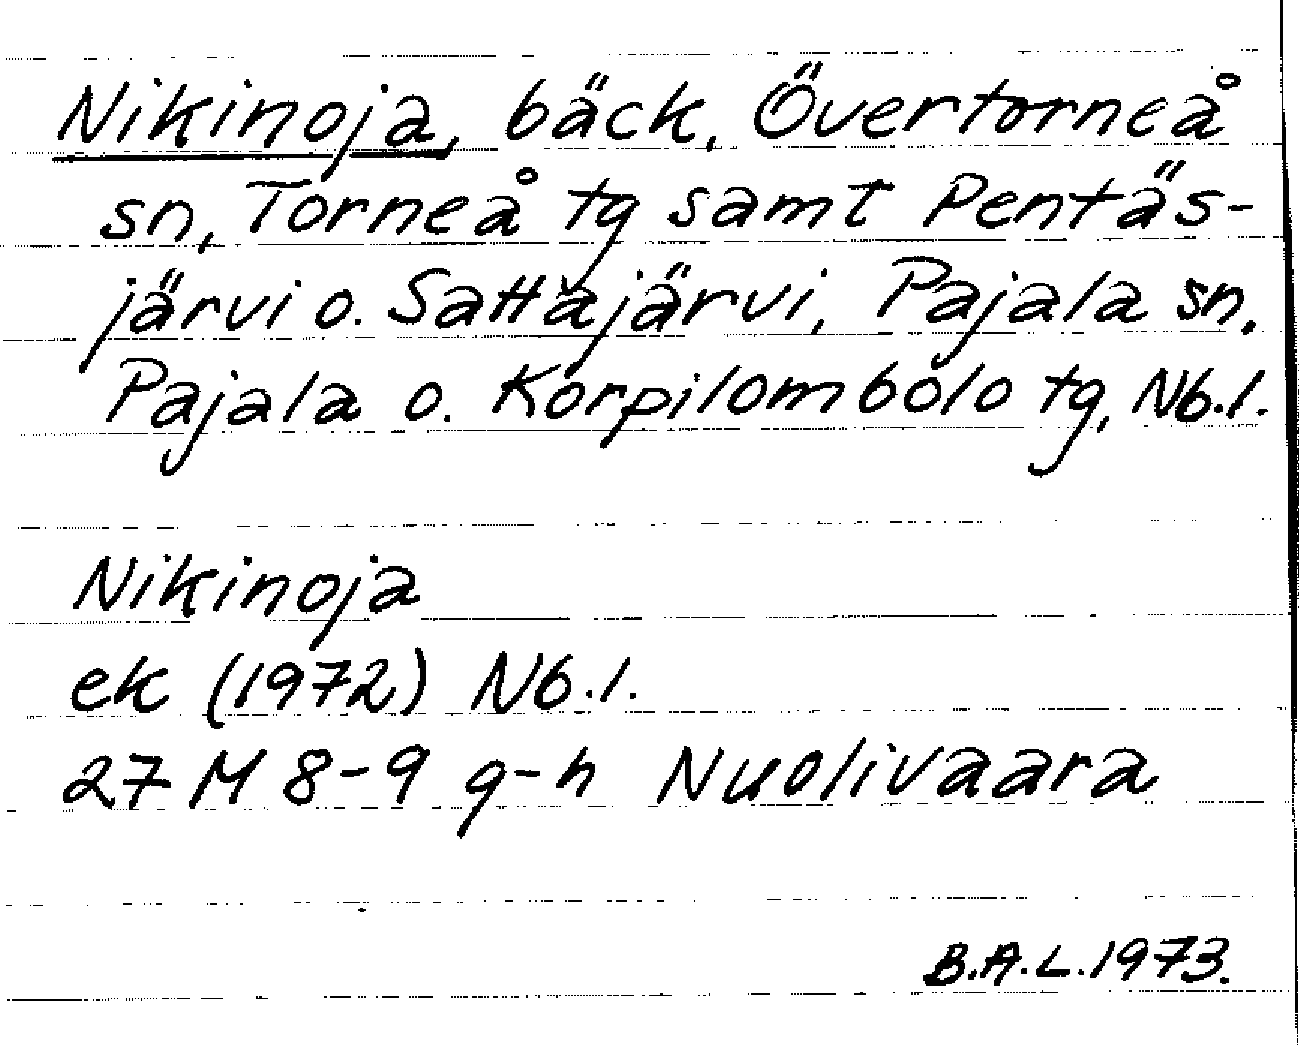 Nikinoja, bäck, Övertorneå
sn, Torneå tg samt Pentäs-
järvi o. Sattajärvi, Pajala sn,
Pajala o. Korpilombolo tg, Nb.l.
Nikinoja
ek (1972) Nb.l.
27 M 8-9 g-h Nuolivaara
B.A.L. 1973.